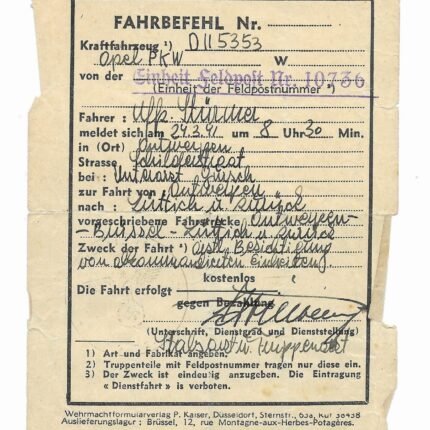 FAHRBEFEHL Nr.
Kraftfahrzeug ¹) D 115353
Opel PKW W
von der Einheit Feldpost Nr. 10736
(Einheit der Feldpostnummer ²)
Fahrer : Uffz. Stürmer
meldet sich am 24.3.41 um 8 Uhr 30 Min.
in (Ort) Antwerpen
Strasse
bei : Unterarzt
zur Fahrt von Antwerpen
nach : Lüttich u. zurück
vorgeschriebene Fahrstrecke Antwerpen-
-Brüssel-Lüttich u. zurück
Zweck der Fahrt ³) Besichtigung
von abkommandierten Einheiten
kostenlos
Die Fahrt erfolgt
gegen Bezahlung
(Unterschrift, Dienstgrad und Dienststellung)
Stabsarzt u. Truppenarzt
1) Art und Fabrikat angeben.
2) Truppenteile mit Feldpostnummer tragen nur diese ein.
3) Der Zweck ist eindeutig anzugeben. Die Eintragung
« Dienstfahrt » is verboten.
Wehrmachtformularverlag P. Kaiser, Düsseldorf, Sternstr., 63a, Ruf 36438
Auslieferungslager : Brüssel, 12, rue Montagne-aux-Herbes-Potagères.